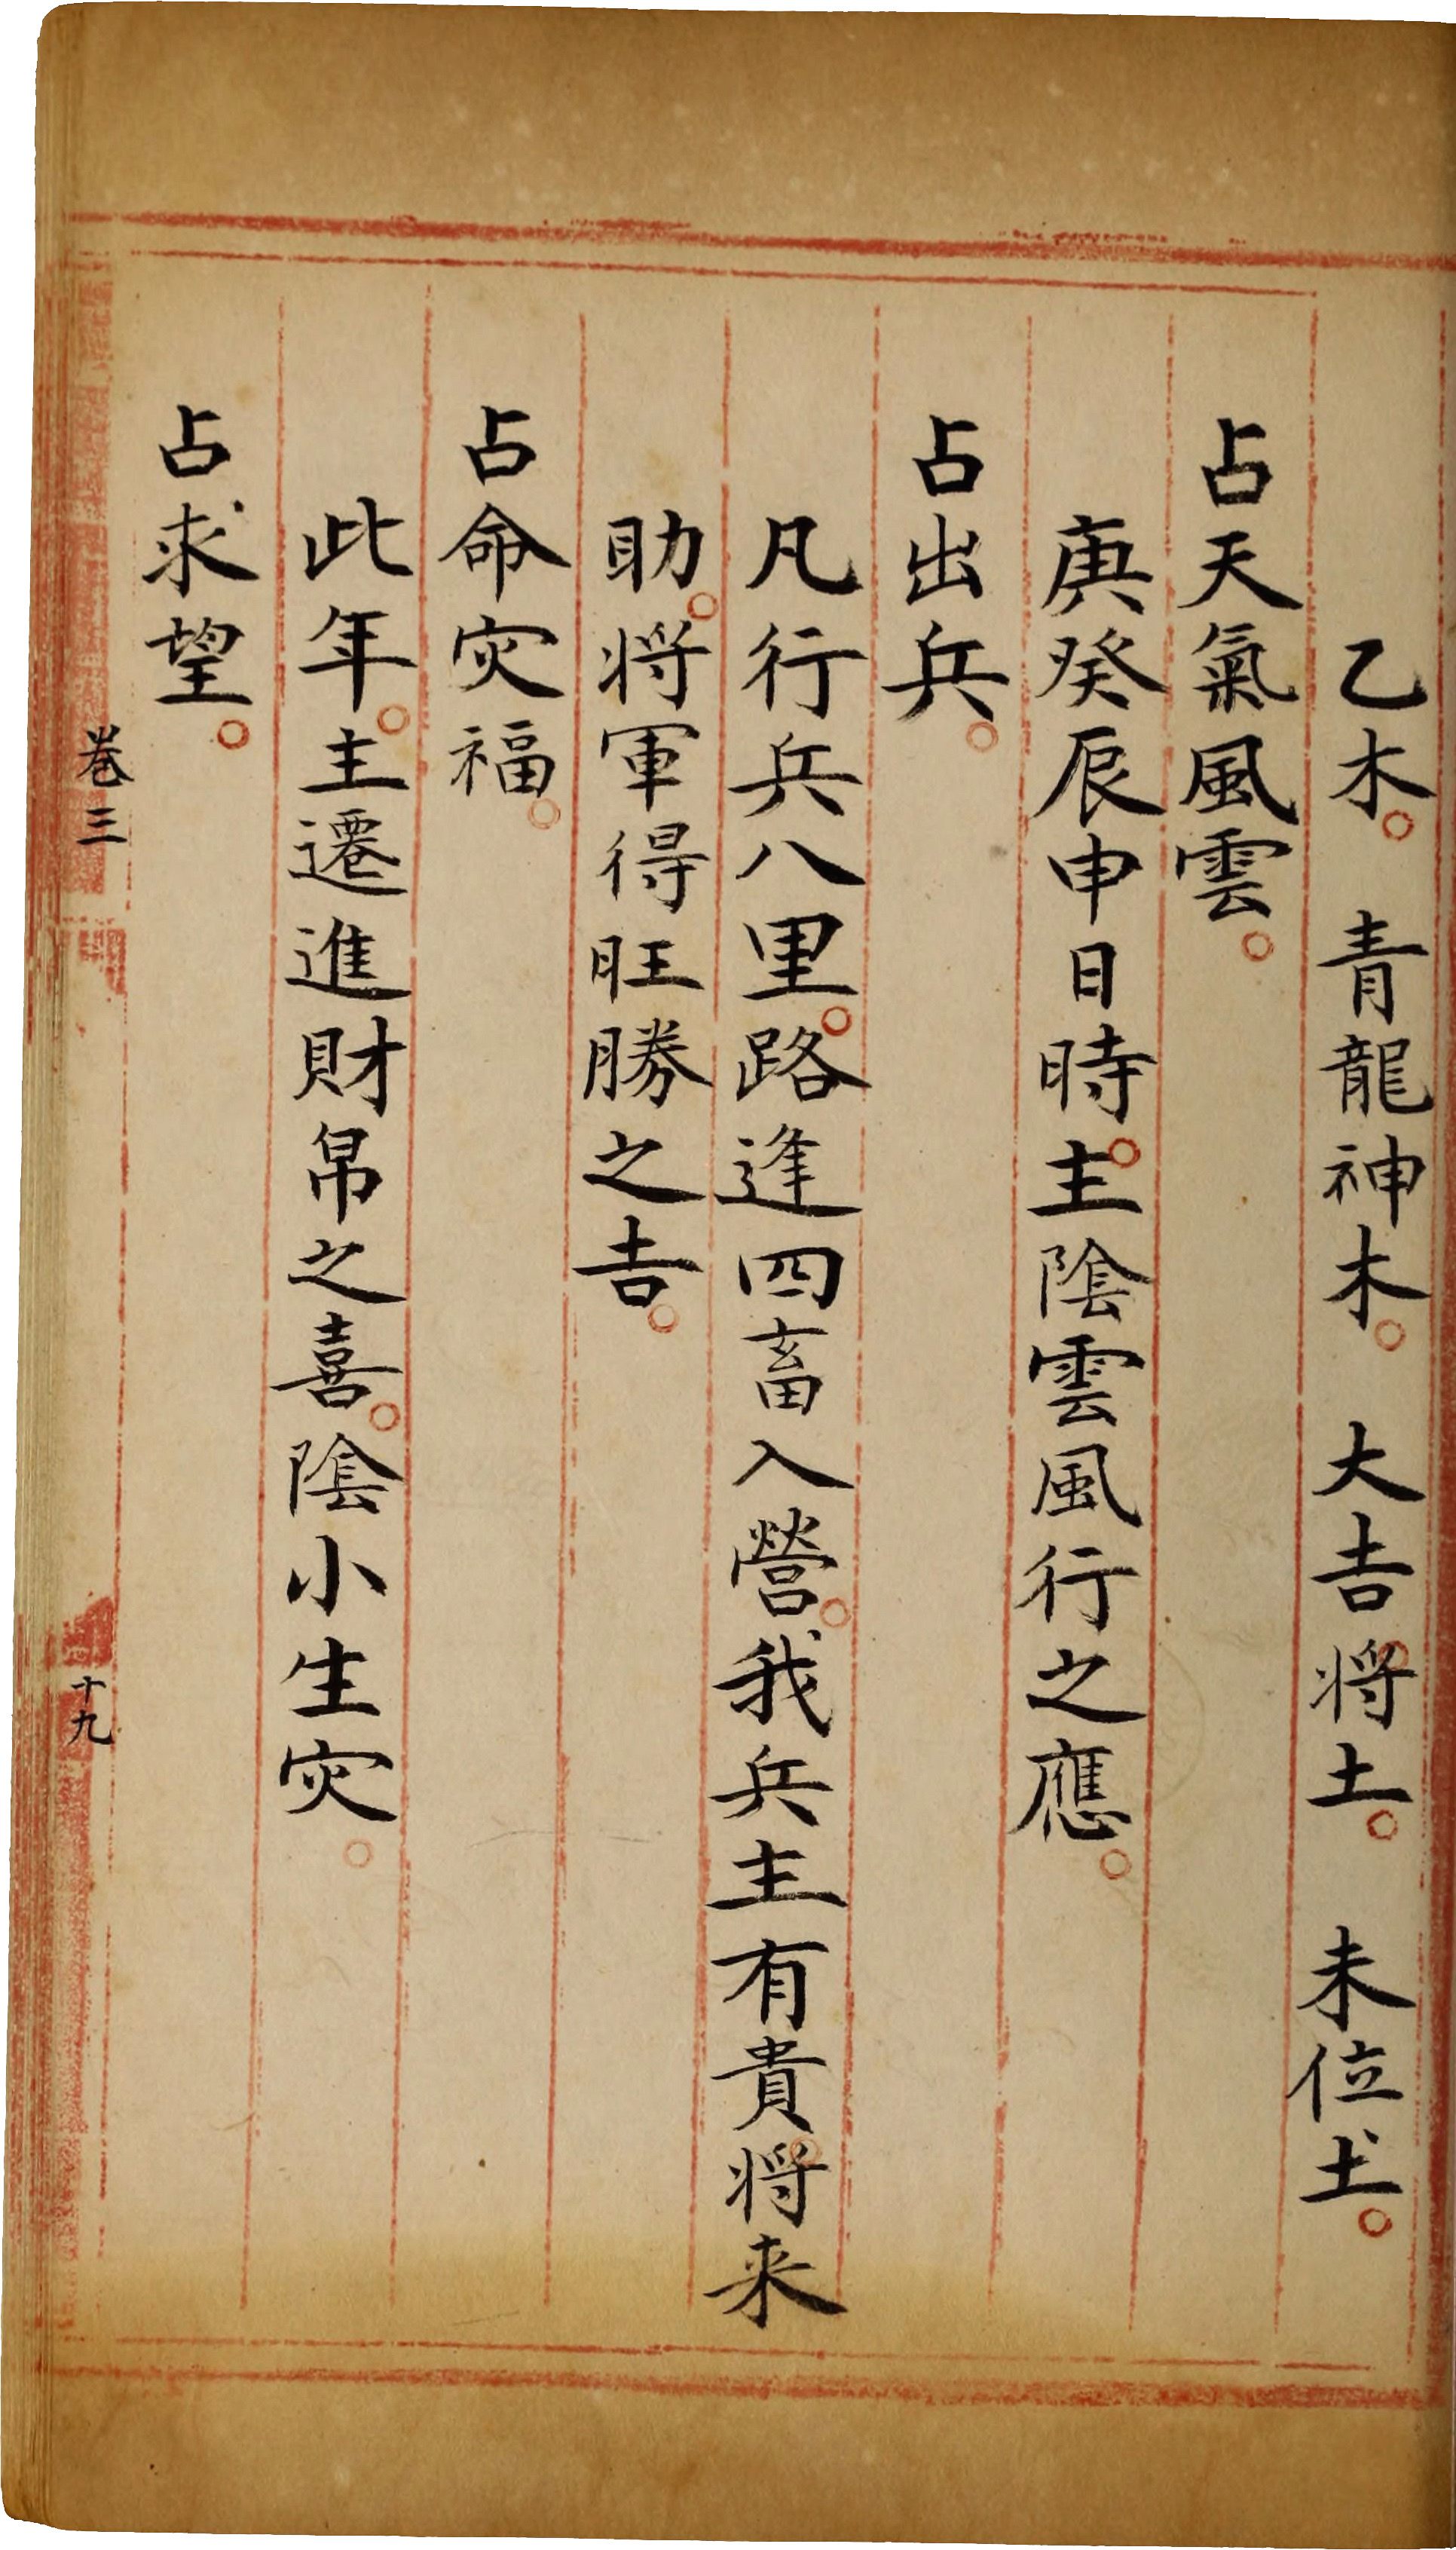 乙木。　青龍神木。　大吉。将土。　未位土。
占天氣風雲。
庚癸辰申日時。主陰雲風行之應。
占出兵。
凡行兵八里。路逢四畜入營。我兵主有貴。将来
助。将軍得旺勝之吉。
占命灾福。
此年。主遷進財帛之喜。陰小生灾。
占求望。
卷三
十九